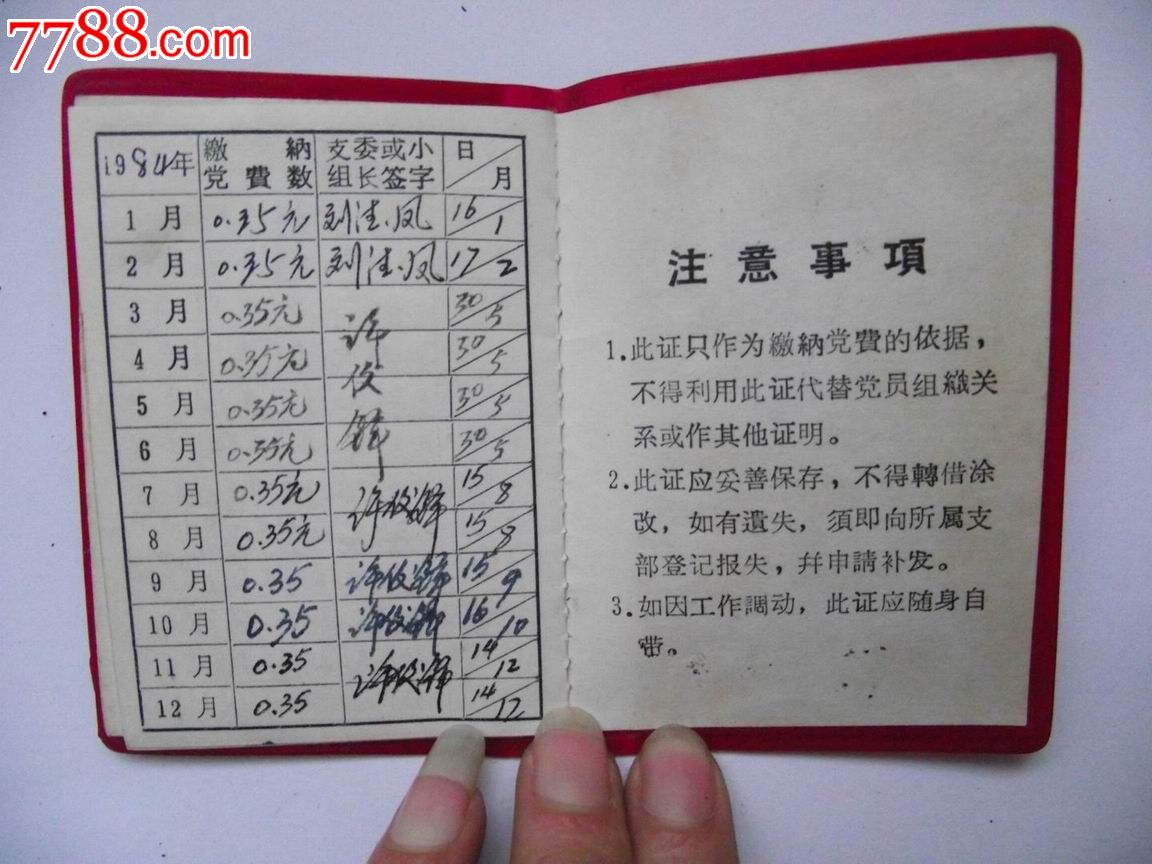 7788.com
1984年 繳納党費数 支委或小组长签字 日/月
1月 0.35元 刘法凤 16/1
2月 0.35元 刘法凤 17/2
3月 0.35元 30/5
4月 0.35元 30/5
5月 0.35元 30/5
6月 0.35元 30/5
7月 0.35元 15/8
8月 0.35元 15/8
9月 0.35 15/9
10月 0.35 16/10
11月 0.35 14/12
12月 0.35 14/12
注意事項
1.此证只作为繳納党費的依据，
不得利用此证代替党员组織关
系或作其他证明。
2.此证应妥善保存，不得轉借涂
改，如有遺失，須即向所属支
部登记报失，幷申請补发。
3.如因工作調动，此证应随身自
带。